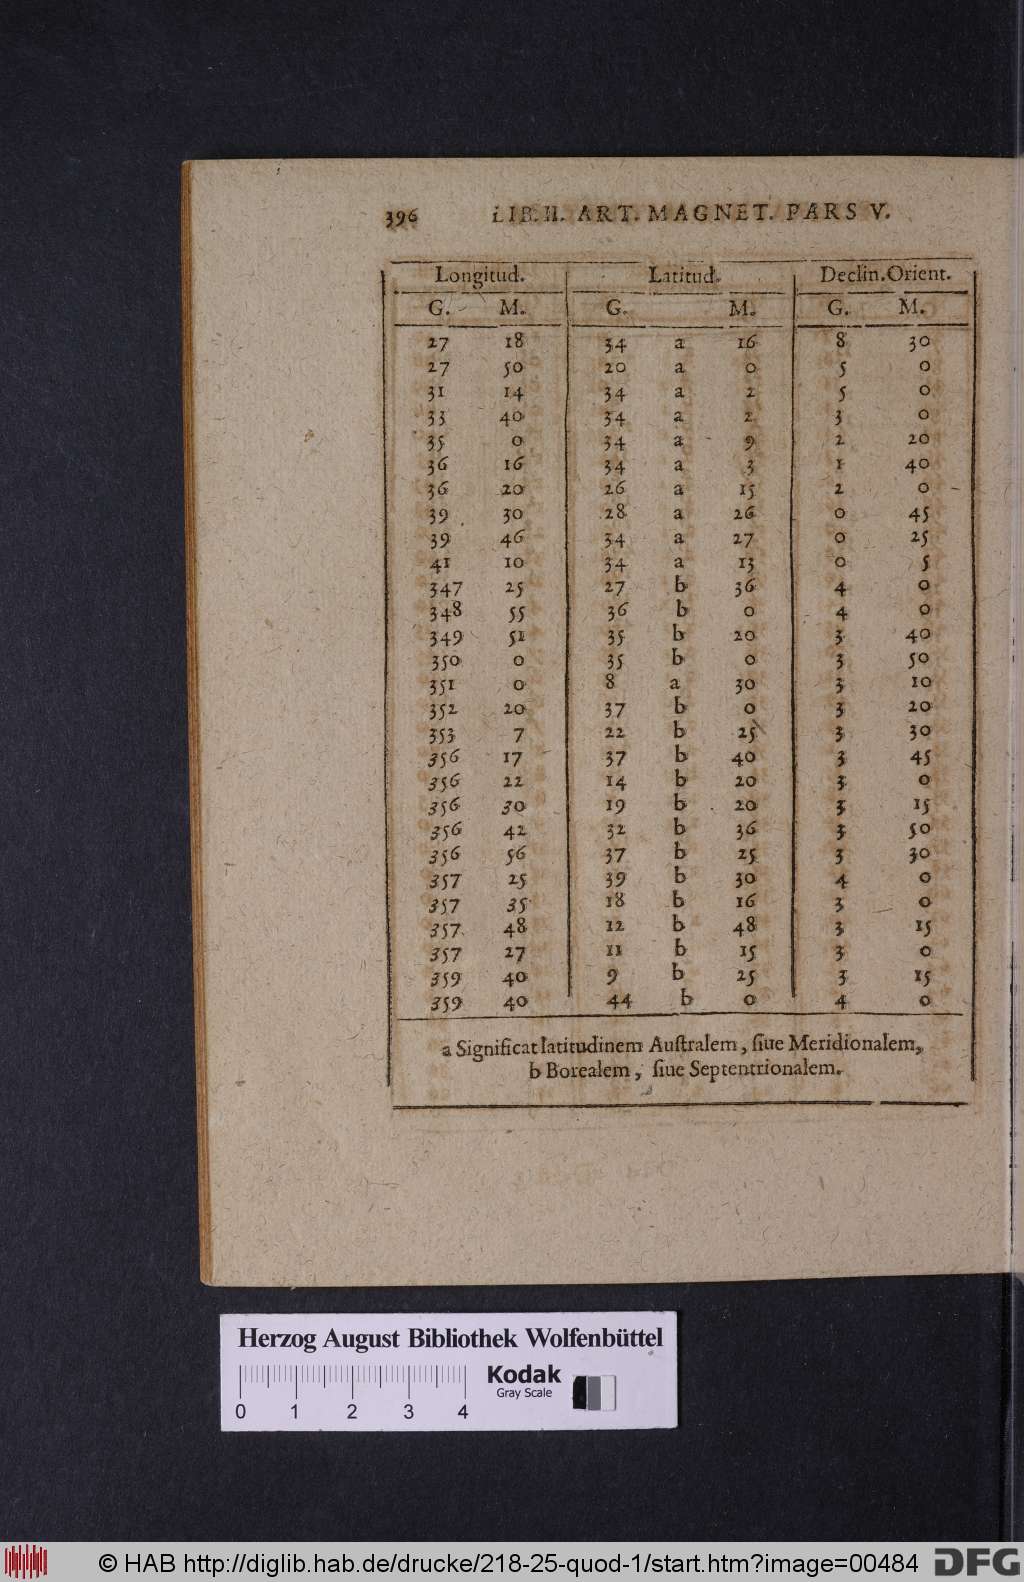 396 LIB. II. ART. MAGNET. PARS V.
Longitud. Latitud. Declin. Orient.
G. M. G. M. G. M.
27 18 34 a 16 8 30
27 50 20 a 0 5 0
31 14 34 a 2 5 0
33 40 34 a 2 3 0
35 0 34 a 9 2 20
36 16 34 a 3 1 40
36 20 26 a 15 2 0
39 30 28 a 26 0 45
39 46 34 a 27 0 25
41 10 34 a 13 0 5
347 25 27 b 36 4 0
348 55 36 b 0 4 0
349 51 35 b 20 3 40
350 0 35 b 0 3 50
351 0 8 a 30 3 10
352 20 37 b 0 3 20
353 7 22 b 25 3 30
356 17 37 b 40 3 45
356 22 14 b 20 3 0
356 30 19 b 20 3 15
356 42 32 b 36 3 50
356 56 37 b 25 3 30
357 25 39 b 30 4 0
357 35 18 b 16 3 0
357 48 12 b 48 3 15
357 27 11 b 15 3 0
359 40 9 b 25 3 15
359 40 44 b 0 4 0
a Significat latitudinem Auſtralem, ſiue Meridionalem,
b Borealem, ſiue Septentrionalem.
Herzog August Bibliothek Wolfenbüttel
Kodak
Gray Scale
0 1 2 3 4
© HAB http://diglib.hab.de/drucke/218-25-quod-1/start.htm?image=00484 DFG